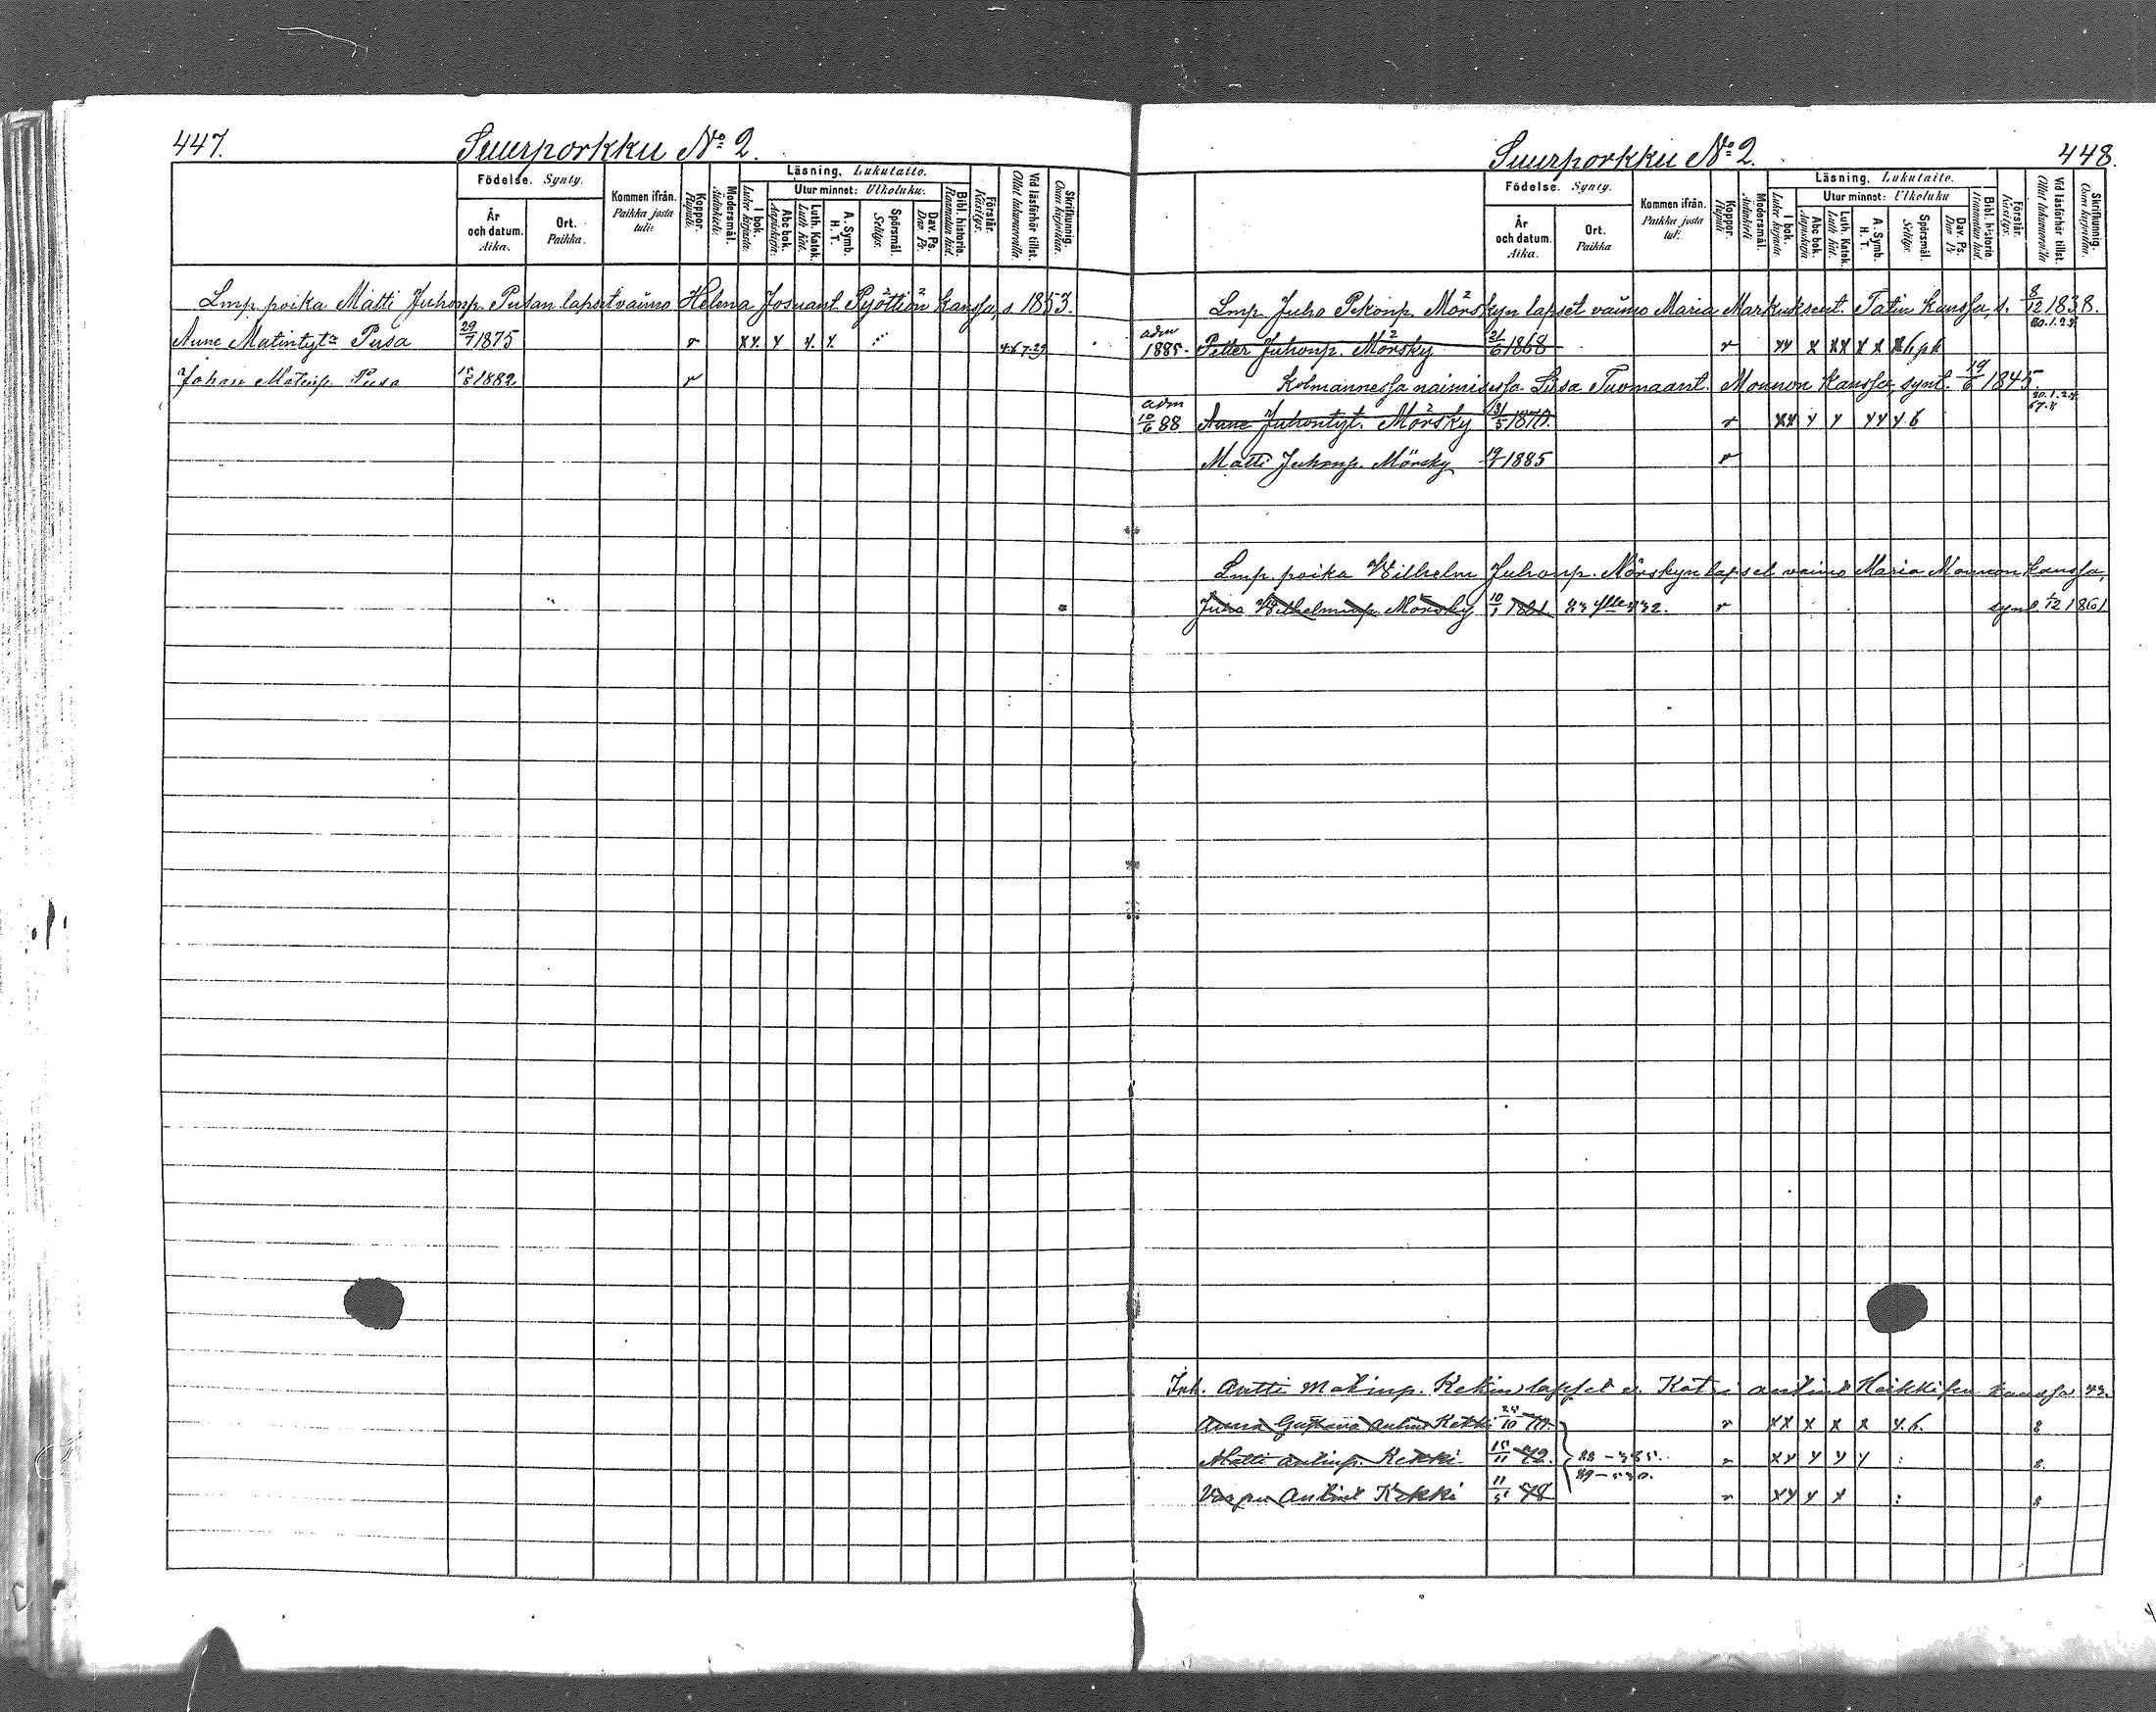 447.
Suurporkku No 2.
Födelse. Synty.
År och datum. Aika.
Ort. Paikka.
Kommen ifrån. Paikka josta tuli.
Koppor. Rupuli.
Modersmål. Äidinkieli.
Läsning, Lukutaito.
I bok. Lukee kirjasta.
Utur minnet: Ulkoluku.
Abc bok. Aapiskirja.
Luth. Katek. Luth. kat.
A. Symb. H. T.
Spörsmål. Selitys.
Dav. Ps. Dav. Ps.
Bibl. historie. Raamatun hist.
Förstår. Käsitys.
Vid läsförhör tillst. Ollut lukuvuorolla.
Skrifkunnig. Osaa kirjoittaa.
Lmp. poika Matti Juhonp. Pusan lapset vaimo Helena Josuant. Pyöttiön kanssa, s. 1853.
Aune Matintyt. Pusa 29/7 1875 r xy. y y. y. 4.6 7.29
Johan Matinp. Pusa 1882 r
Suurporkku No 2.
448.
Födelse. Synty.
År och datum. Aika.
Ort. Paikka
Kommen ifrån. Paikka josta tuli.
Koppor. Rupuli
Modersmål. Äidinkieli
Läsning, Lukutaito.
I bok. Lukee kirjasta.
Utur minnet: Ulkoluku
Abc bok. Aapiskirja
Luth. Katek. Luth. kat.
A. Symb. H. T.
Spörsmål. Selitys.
Dav. Ps. Dav. Ps
Bibl. historie. Raamatun hist.
Förstår. Käsitys.
Vid läsförhör tillst. Ollut lukuvuorolla
Skrifkunnig. Osaa kirjoittaa.
Lmp. Juho Pekonp. Mörskyn lapset vaimo Maria Markuksent. Tatin kanssa, s. 8/12 1838.
adm 1885. Petter Juhonp. Mörsky 21/6 1868 r xy x xx x x 20.1.24
Kolmannessa naimisessa Liisa Tuomaant. Monnon kanssa, synt. 19/6 1845.
adm 10/6 88 Aune Juhontyt. Mörsky 1870. r xx y y yy y.6 20.1.24
Matti Juhonp. Mörsky 1885 r
Lmp. poika Wilhelm Juhonp. Mörskyn lapset vaimo Maria Monnon kanssa,
Juho Wilhelminp. Mörsky 10/1 1881 r synt. 1/12 1861
Antti Matinp. Kekin lapset v. Katri Antint Heikkisen kanssa
Anna Gustava Antint Kekki r xx x x x y.6. 8
Matti Antinp. Kekki 15/11 72. r xy y y y 8.
Vappu Antint Kekki 11/5 78 r xy y x 8